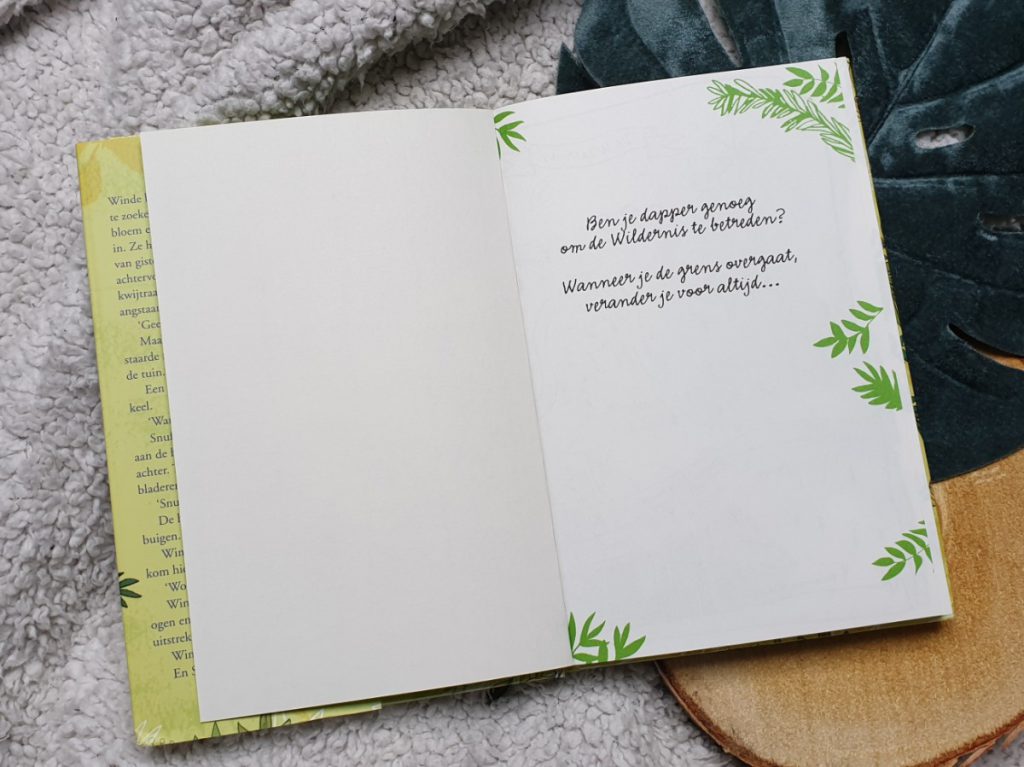 Winde
te zoeke
bloem
in. Ze
van giste
achterve
kwijtraa
angstaan
'Gee
Maa
staarde
de tuin.
Een
keel.
'Wa
Snu
aan de
achter.
bladeren
'Snu
De
buigen.
Win
kom hie
'Wo
Win
ogen en
uitstrek
Win
En S
Ben je dapper genoeg
om de Wildernis te betreden?
Wanneer je de grens overgaat,
verander je voor altijd...